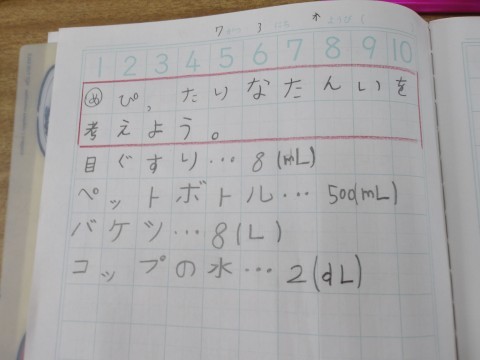 7がつ 3にち 木ようび
1 2 3 4 5 6 7 8 9 10
め ぴ、たりなたんいを
考えよう。
目ぐすり…8(mL)
ペットボトル…500(mL)
バケツ…8(L)
コップの水…2(dL)